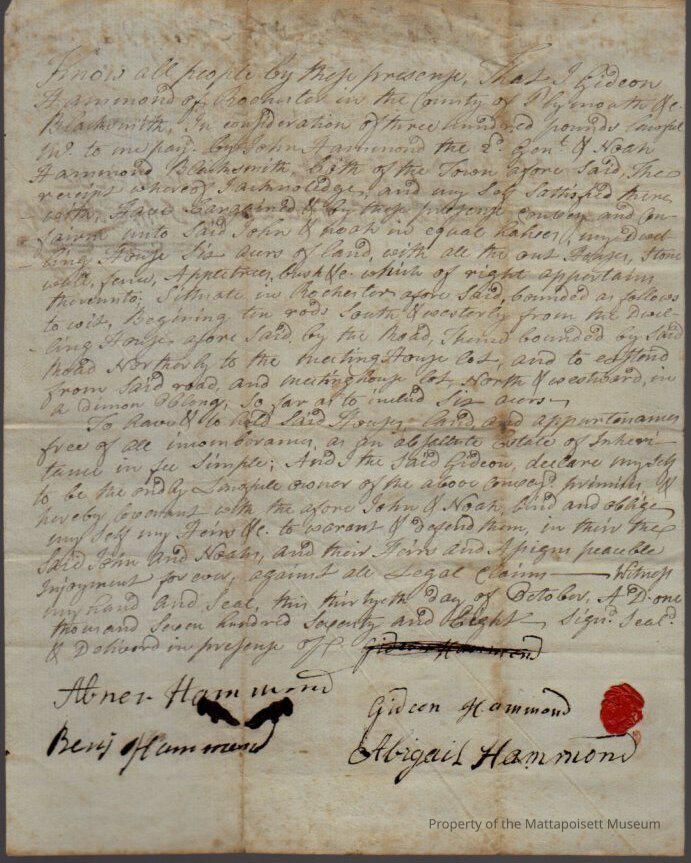 Know all people by these presense, That I Gideon
Hammond of Rochester in the County of Plymouth &c.
Blacksmith, In consideration of three hundred pounds lawful
mº. to me paid by John Hammond the 2d. Gent. & Noah
Hammond Blacksmith, both of the Town afore Said, The
receipt whereof I acknoledge, and my Self Sattisfied there
with, Have Bargained & by these presense convey and Con
unto Said John & Noah in equal halves, my Dwel
ling House Six acers of land, with all the out Houses, Stone
wall, fence, Appletrees, bush &c. which of right appertains
thereunto; Situate in Rochester afore Said, bounded as follows
to wit, Begining ten rods South & westerly from the Dwel
ling House afore Said, by the Road, Thence bounded by Said
Road Northerly to the meeting House lot, and to extend
from Said road, and meeting house lot North & westward, in
a Dimon Oblong, So far as to includ Six acers
To have & to hold Said Houses, Land, and appurtenances
free of all incomberances, as an absollute Estate of Inheri
tance in fee Simple; And I the Said Gideon, declare my Self
to be the only Lawfull owner of the above convey.d premises &
hereby Covenant with the afore John & Noah, bind and oblige
my Self my Heirs &c. to warant & defend them, in their the
Said John and Noahs, and their Heirs and Assigns peaceble
Injoyment for ever, against all Legal Claims — Witness
my hand and Seal, this thirtyeth Day of October, A D: one
thousand Seven hundred Seventy and Eight Sign.d Seal.d
& Delivered in presense of
Gideon Hammond
Abner Hammond
Gideon Hammond
Benj Hammond
Abigail Hammond
Property of the Mattapoisett Museum